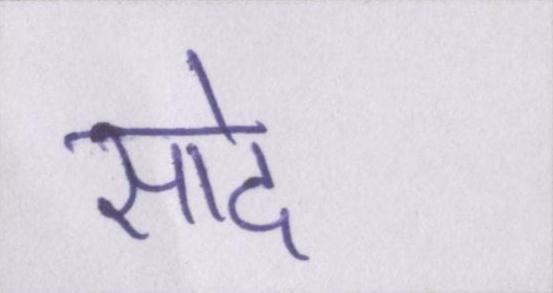 सादे